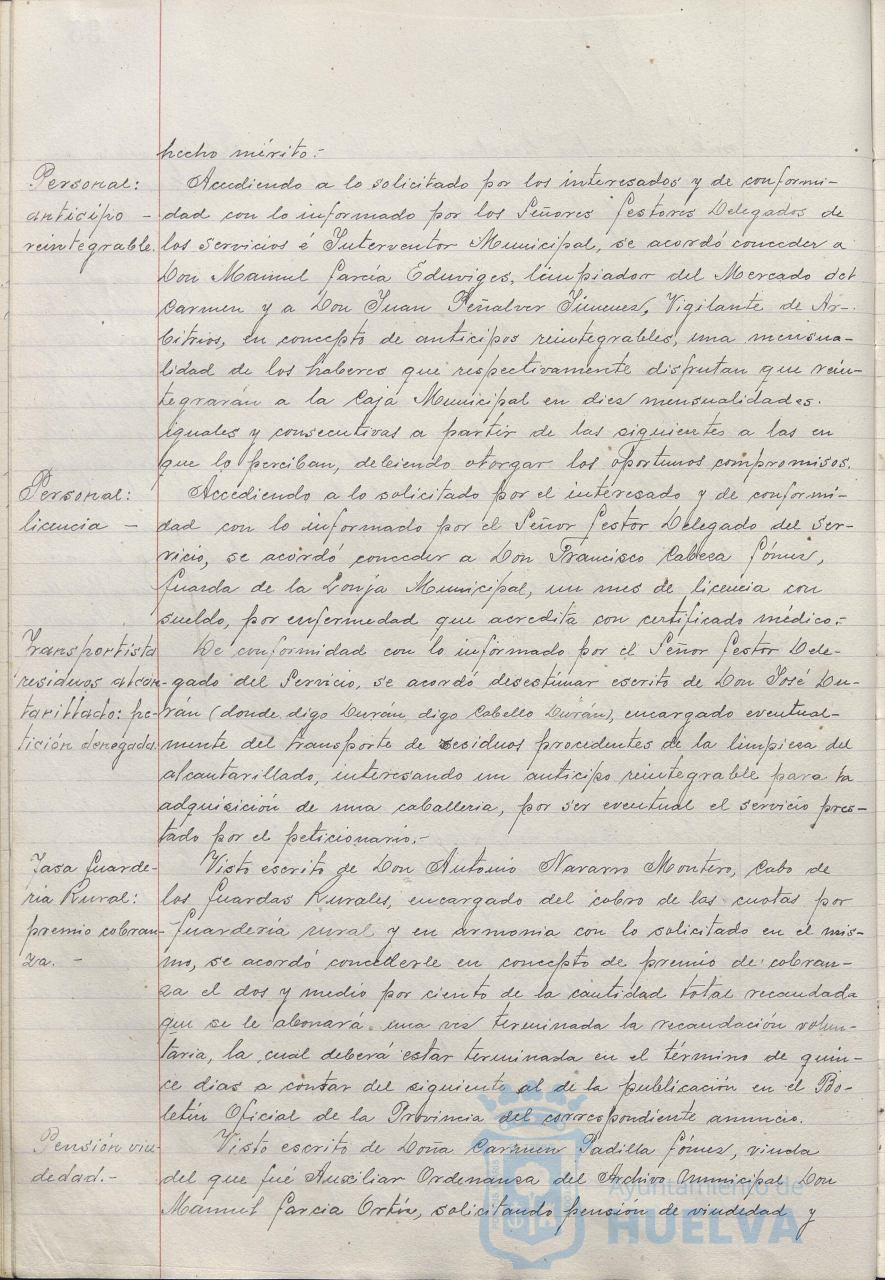 hecho mérito.-
Personal:
anticipo -
reintegrable.
Accediendo a lo solicitado por los interesados y de conformi-
dad con lo informado por los Señores Gestores Delegados de
los servicios é Interventor Municipal, se acordó conceder a
Don Manuel García Eduviges, limpiador del Mercado del
Carmen y a Don Juan Peñalver Jimenez, Vigilante de Ar-
bitrios, en concepto de anticipos reintegrables, una mensua-
lidad de los haberes que respectivamente disfrutan que rein-
tegrarán a la Caja Municipal en diez mensualidades.
iguales y consecutivas a partir de las siguientes a las en
que lo perciban, debiendo otorgar los oportunos compromisos.
Personal:
licencia -
Accediendo a lo solicitado por el interesado y de conformi-
dad con lo informado por el Señor Gestor Delegado del ser-
vicio, se acordó conceder a Don Francisco Cabeza Gómez,
Guarda de la Lonja Municipal, un mes de licencia con
sueldo, por enfermedad que acredita con certificado médico.-
Transportista
residuos alcan-
tarillado: pe-
tición denegada.
De conformidad con lo informado por el Señor Gestor Dele-
gado del Servicio, se acordó desestimar escrito de Don José Du-
rán (donde digo Durán digo Cabello Durán), encargado eventual-
mente del transporte de residuos procedentes de la limpieza del
alcantarillado, interesando un anticipo reintegrable para la
adquisición de una caballeria, por ser eventual el servicio pres-
tado por el peticionario.-
Tasa Guarde-
ria Rural:
premio cobran-
za. -
Visto escrito de Don Antonio Navarro Montero, Cabo de
los Guardas Rurales, encargado del cobro de las cuotas por
Guardería rural y en armonia con lo solicitado en el mis-
mo, se acordó concederle en concepto de premio de cobran-
za el dos y medio por ciento de la cantidad total recaudada
que se le abonará una vez terminada la recaudación volun-
taria, la cual deberá estar terminada en el término de quin-
ce dias a contar del siguiente al de la publicación en el Bo-
letín Oficial de la Provincia del correspondiente anuncio.
Pensión viu-
dedad.-
Visto escrito de Doña Carmen Padilla Gómez, viuda
del que fué Auxiliar Ordenanza del Archivo Municipal Don
Manuel García Ortiz, solicitando pensión de viudedad y
Ayuntamiento de
HUELVA